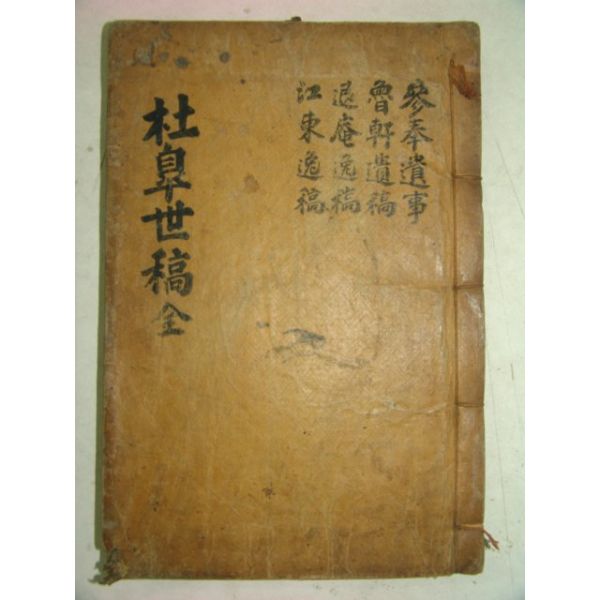 參奉遺事
魯軒遺稿
退庵逸稿
江東逸稿
杜皐世稿全